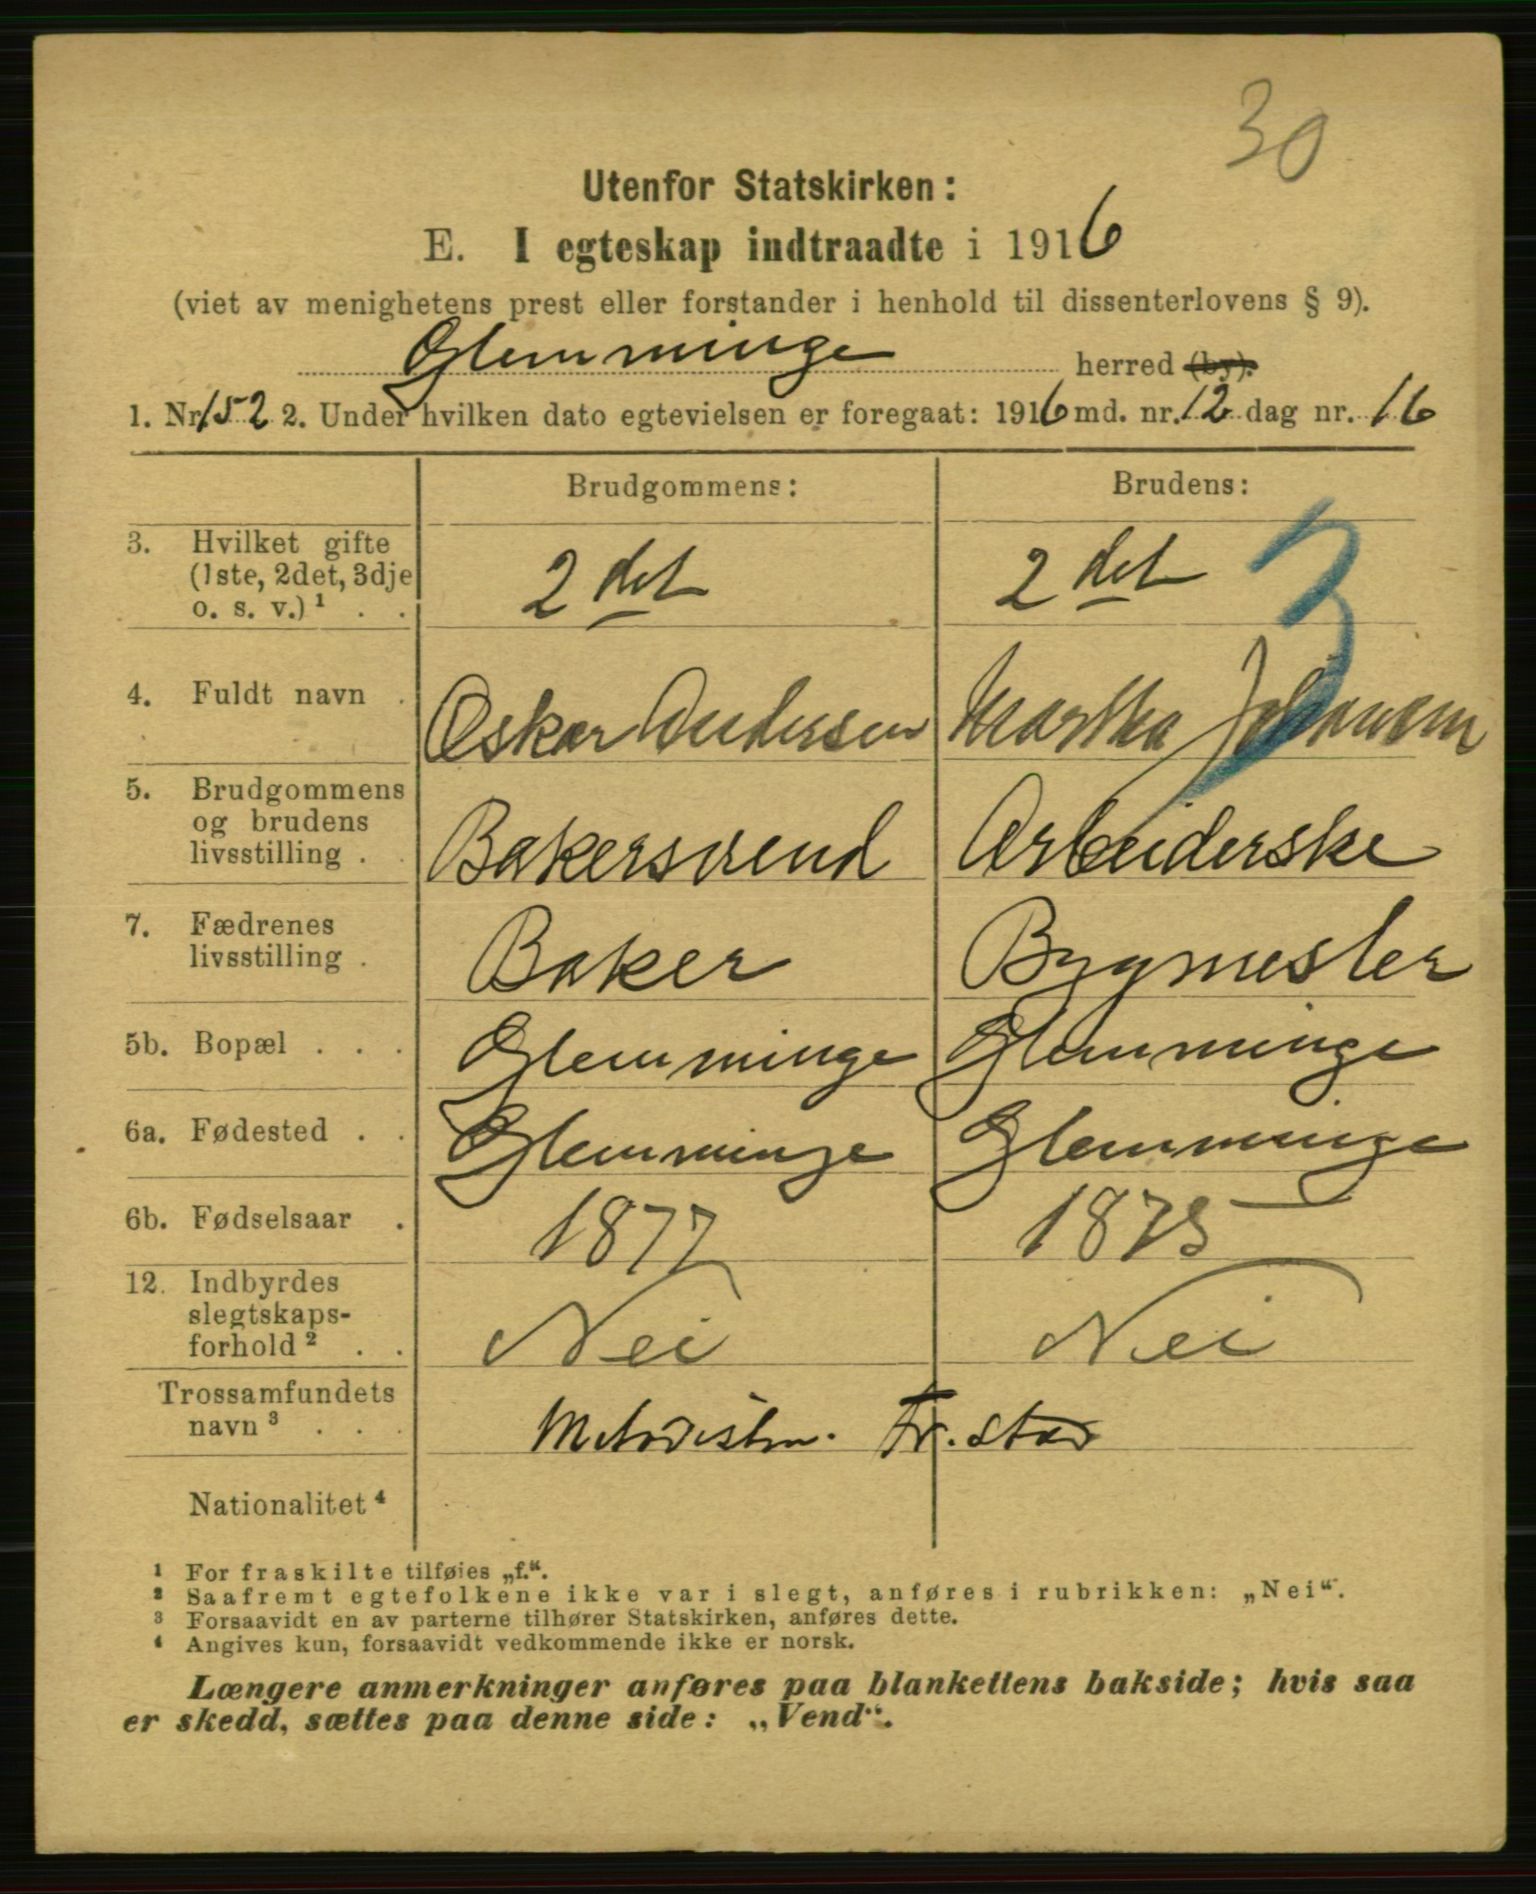 30
Utenfor Statskirken:
E. I egteskap indtraadte i 1916
(viet av menighetens prest eller forstander i henhold til dissenterlovens § 9).
Glemminge herred (by).
1. Nr. 152 2. Under hvilken dato egtevielsen er foregaat: 1916 md. nr. 12 dag nr. 16
Brudgommens: Brudens:
3. Hvilket gifte
(1ste, 2det, 3dje
o. s. v.) ¹ . . 2det 2det 3
4. Fuldt navn . Oskar Andersen Martha Johansen
5. Brudgommens
og brudens
livsstilling . . Bakersvend Arbeiderske
7. Fædrenes
livsstilling . Baker Bygmester
5b. Bopæl . . . Glemminge Glemminge
6a. Fødested . . Glemminge Glemminge
6b. Fødselsaar . 1877 1875
12. Indbyrdes
slegtskaps-
forhold ² . . Nei Nei
Trossamfundets
navn ³ . . . Metodistm. Fr.stad
Nationalitet ⁴
¹ For fraskilte tilføies „f.“.
² Saafremt egtefolkene ikke var i slegt, anføres i rubrikken: „Nei“.
³ Forsaavidt en av parterne tilhører Statskirken, anføres dette.
⁴ Angives kun, forsaavidt vedkommende ikke er norsk.
Længere anmerkninger anføres paa blankettens bakside; hvis saa
er skedd, sættes paa denne side: „Vend“.